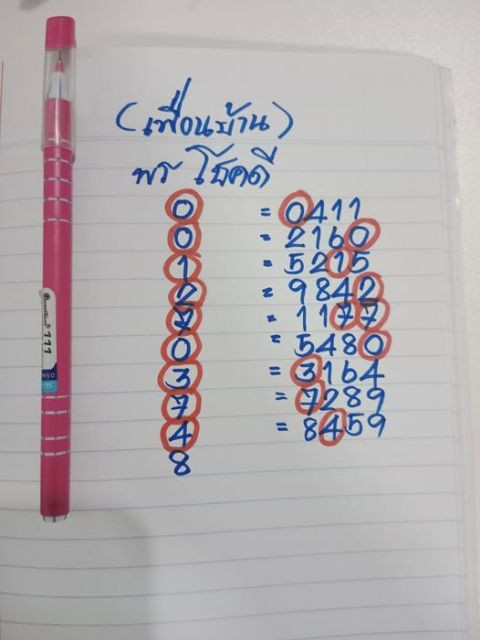 (เพื่อนบ้าน)
พร โชคดี
0 = 0411
0 = 2160
1 = 5215
2 = 9842
7 = 1177
0 = 5480
3 = 3164
7 = 7289
4 = 8459
8
111